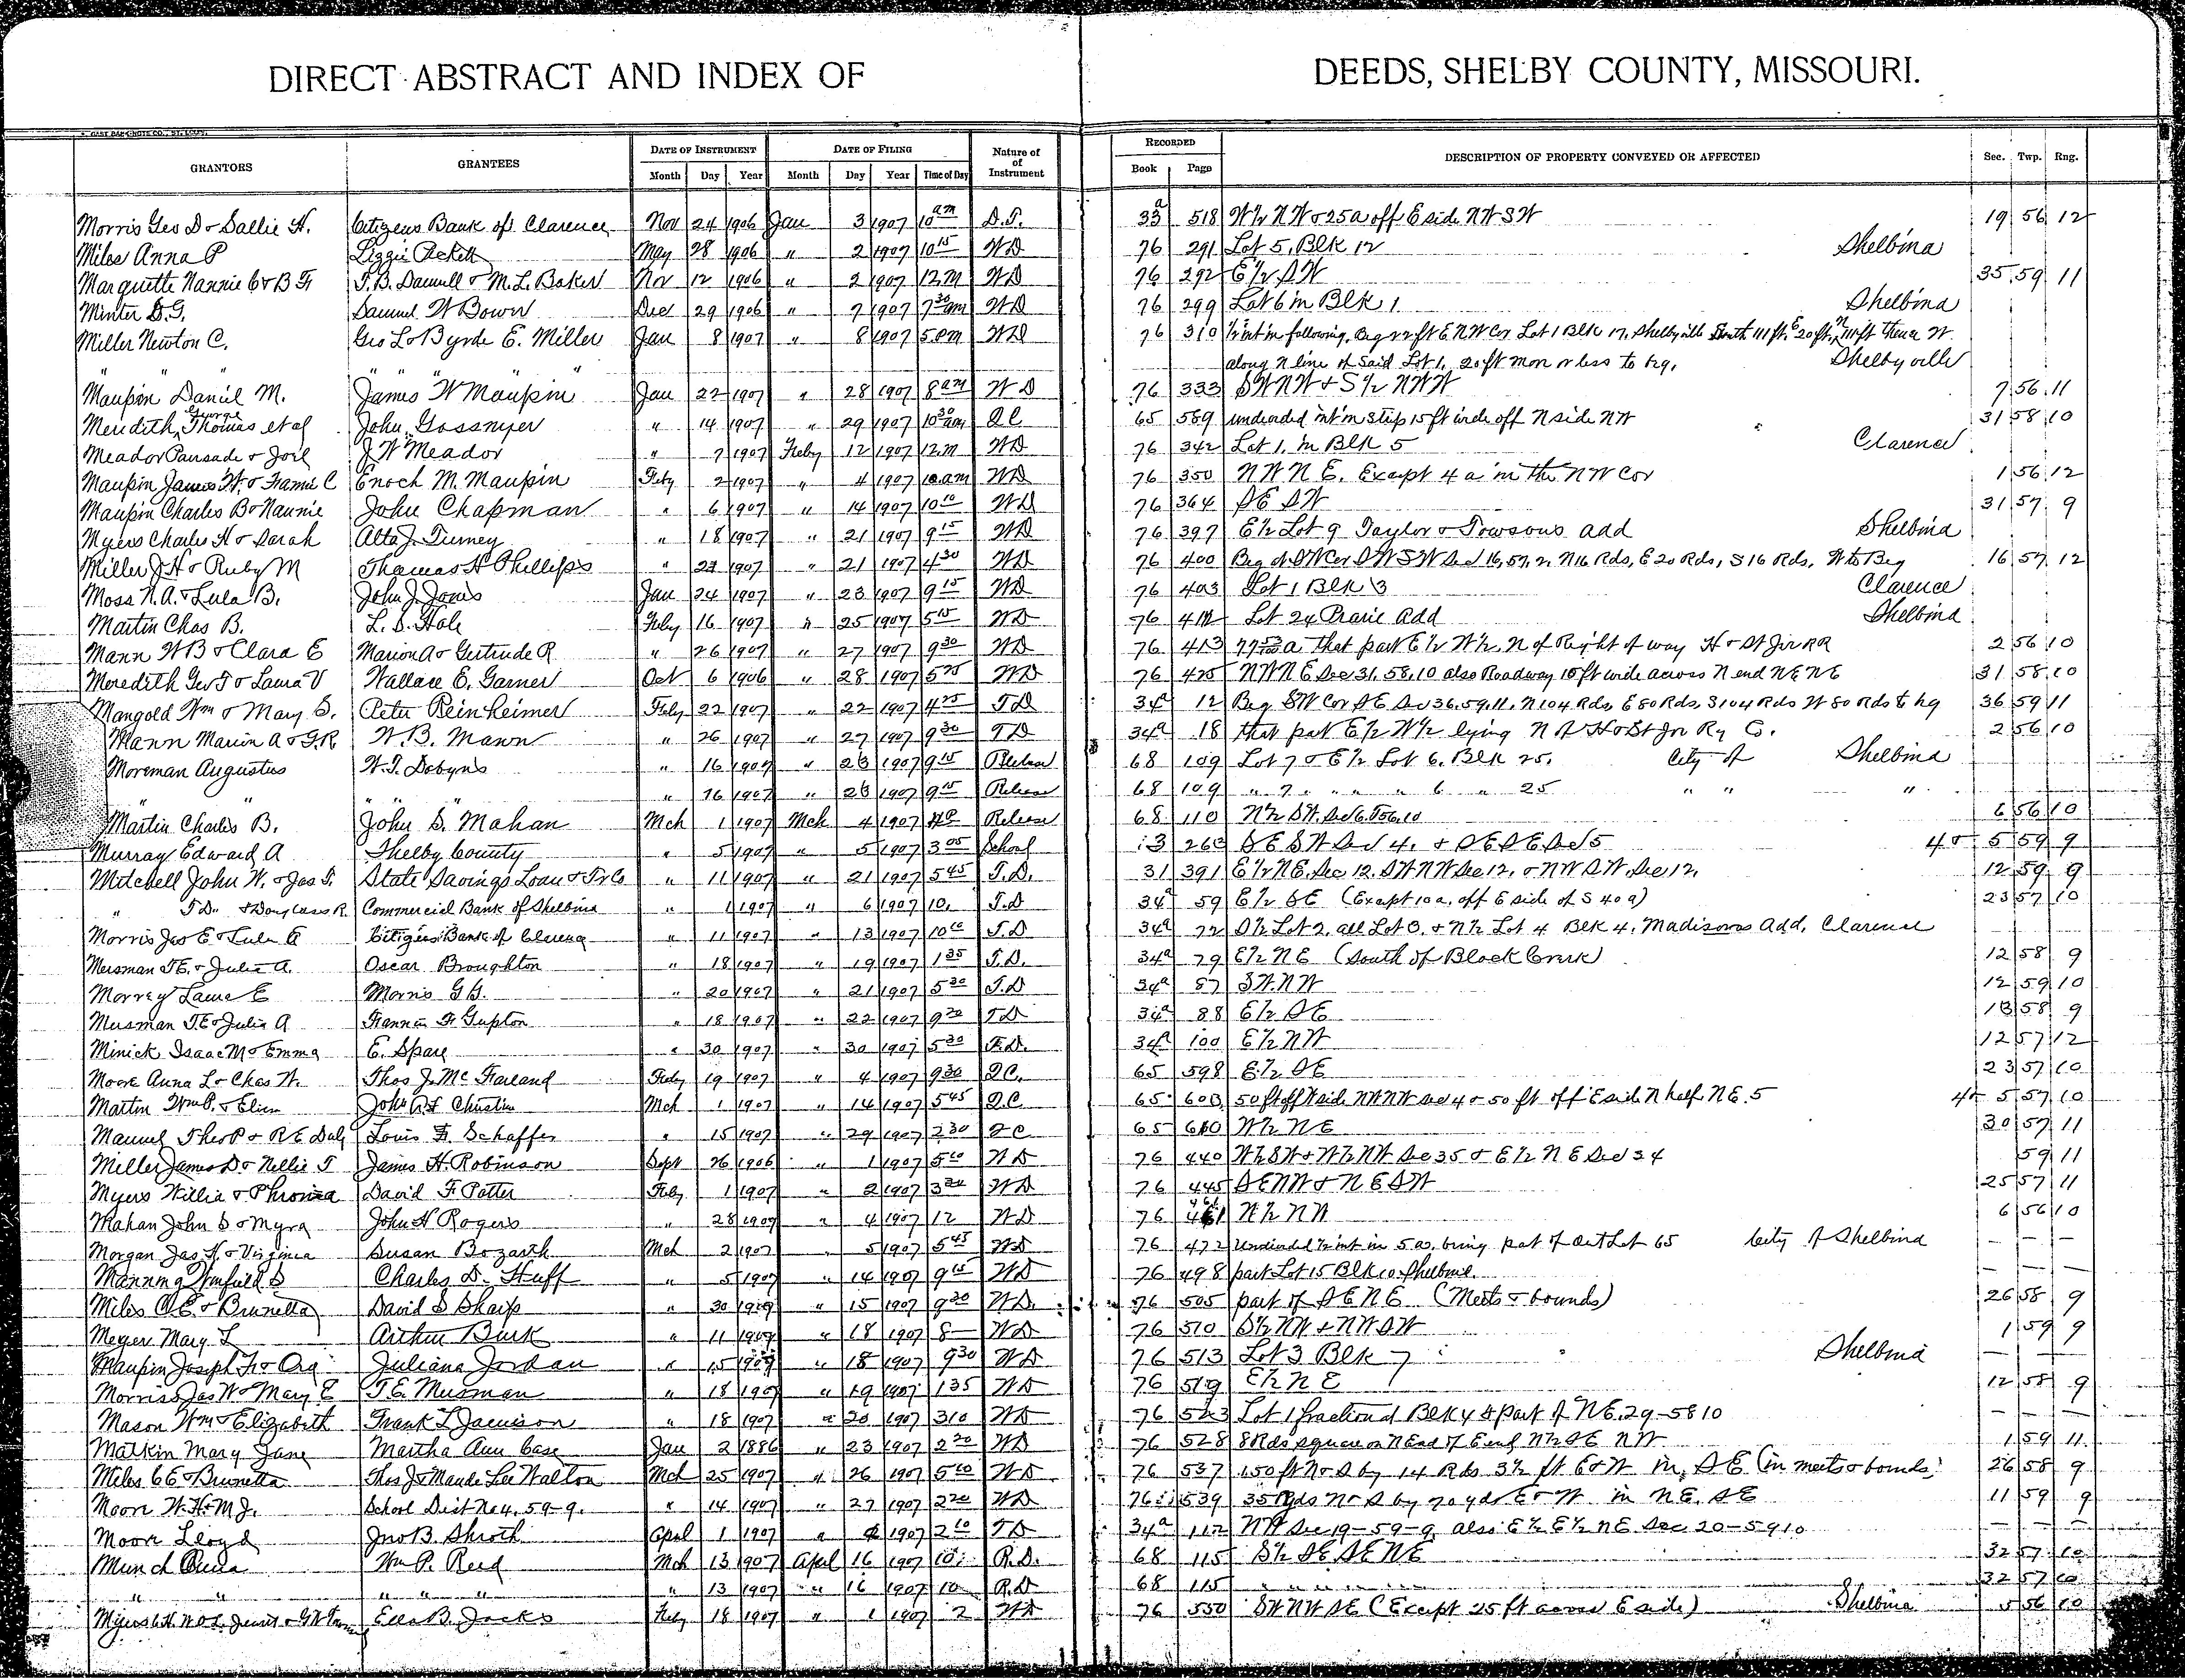 DIRECT ABSTRACT AND INDEX OF DEEDS, SHELBY COUNTY, MISSOURI.
GRANTORS GRANTEES DATE OF INSTRUMENT DATE OF FILING Nature of of Instrument RECORDED DESCRIPTION OF PROPERTY CONVEYED OR AFFECTED Sec. Twp. Rng.
Month Day Year Month Day Year Time of Day Book Page
Morris Geo D & Sallie H. Citizens Bank of Clarence Nov 24 1906 Jan 3 1907 10 am D.T. 33a 518 W½ NW & 25a off E side NW SW 19 56 12
Miles Anna P Lizzie May 28 1906 " 2 1907 10 15 WD 76 291 Lot 5, Blk 12 Shelbina
Marquette Nannie C & B F & M.L. Baker Nov 12 1906 " 2 1907 12 M WD 76 292 E½ SW 35 59 11
Minter D.G. Samuel W Bown Dec 29 1906 " 7 1907 7 30 am WD 76 299 Lot 6 in Blk 1 Shelbina
Miller Newton C. Geo L & Byrde E. Miller Jan 8 1907 " 8 1907 5 pm WD 76 310 ½ int in following, Beg 22 ft E NW Cor Lot 1 Blk 17, Shelbyville South 111 ft, E 20 ft, N 111 ft thence W.
" " " " " along N line of Said Lot 1, 20 ft more or less to beg. Shelbyville
Maupin Daniel M. James W Maupin Jan 22 1907 " 28 1907 8 am WD 76 333 SW NW & S½ NW NW 7 56 11
Meredith, George Thomas et al John Gossnyer " 14 1907 " 29 1907 10 30 am QC 65 589 undivided int in strip 15 ft wide off N side NW 31 58 10
Meador & Joel J W Meador " 7 1907 Feby 12 1907 12 M WD 76 342 Lot 1, in Blk 5 Clarence
Maupin James W. & Fannie C Enoch M. Maupin Feby 2 1907 " 4 1907 10 am WD 76 350 NW NE, Except 4 a in the NW Cor 1 56 12
Maupin Charles B & Nannie John Chapman " 6 1907 " 14 1907 10 10 WD 76 364 SE SW 31 57 9
Myers Charles H & Sarah Alta J. Turney " 18 1907 " 21 1907 9 15 WD 76 397 E½ Lot 9 Taylor & Towsons add Shelbina
Miller J H & Ruby M Thomas H Phillips " 21 1907 4 30 WD 76 400 Beg at SW Cor SW SW Sec 16, 57, 12, N 16 Rds, E 20 Rds, S 16 Rds, W to Beg 16 57 12
Moss N.A. & Lula B. John J. Jones Jan 24 1907 " 23 1907 9 15 WD 76 403 Lot 1 Blk 3 Clarence
Martin Chas B. L. S. Hale Feby 16 1907 " 25 1907 5 15 WD 76 412 Lot 24 Prairie add Shelbina
Mann W B & Clara E Marion A & Gertrude R " 26 1907 " 27 1907 9 30 WD 76 413 that part E½ W½, N of Right of way H & St Joe RR 2 56 10
Meredith Geo T & Laura V Wallace E. Garner Oct 6 1906 " 28 1907 WD 76 425 NW NE Sec 31, 58, 10 also Roadway 15 ft wide across N end NE NE 31 58 10
Mangold Wm & Mary S. Peter Peinheimer Feby 22 1907 " 22 1907 4 25 TD 34a 12 Beg SW Cor SE Sec 36, 59, 11, N 104 Rds, E 80 Rds, S 104 Rds W 80 Rds to beg 36 59 11
Mann Marion A & G.R. W.B. Mann " 26 1907 " 27 1907 9 30 TD 34a 18 that part E½ W½ lying N of H & St Joe Ry Co. 2 56 10
Moreman Augustus W.T. Dobyns " 16 1907 " 23 1907 9 15 Release 68 109 Lot 7 & E½ Lot 6, Blk 25, City of Shelbina
" " " " " " 16 1907 " 23 1907 9 15 Release 68 109 " 7 " " " 6 " 25 " " "
Martin Charles B. John S. Mahan Mch 1 1907 Mch 4 1907 Release 68 110 N½ SW, Sec 6, T 56, 10 6 56 10
Murray Edward A Shelby County " 5 1907 " 5 1907 3 05 School 13 263 SE SW Sec 4, & SE SE Sec 5 4 & 5 59 9
Mitchell John W. & Jas T. State Savings Loan & Tr Co " 11 1907 " 21 1907 5 45 T.D. 31 391 E½ NE, Sec 12, SW NW Sec 12, & NW SW, Sec 12, 12 59 9
" T.D. & Douglass R. Commercial Bank of Shelbina " 1 1907 " 6 1907 10, T.D 34a 59 E½ SE (Except 10 a, off E side of S 40 a) 23 57 10
Morris Jas E & Lula A Citizens Bank of Clarence " 11 1907 " 13 1907 10 T.D 34a 72 S½ Lot 2, all Lot 3, & N½ Lot 4 Blk 4, Madisons Add, Clarence
Musman T.E. & Julia A. Oscar Broughton " 18 1907 " 19 1907 1 35 T.D. 34a 79 E½ NE (South of Black Creek) 12 58 9
Morrey Laura E Morris G.G. " 20 1907 " 21 1907 5 30 T.D 34a 87 SW NW 12 59 10
Musman T.E & Julia A Fannie F. Gupton " 18 1907 " 22 1907 9 20 TD 34a 88 E½ SE 13 58 9
Minick Isaac M & Emma E. Spare " 30 1907 " 30 1907 5 30 T.D. 34a 100 E½ NW 12 57 12
Moore Anna L & Chas W. Thos J. Mc Farland Feby 19 1907 " 4 1907 9 30 Q.C. 65 598 E½ SE 23 57 10
Martin Wm P. & Eliza John A.F. Christin Mch 1 1907 " 14 1907 5 45 Q.C 65 603 50 ft off side NW NW Sec 4 & 50 ft off E side N half NE 5 4 & 5 57 10
Manuel Theo P & R E Daly Louis F. Schaffer " 15 1907 " 29 1907 2 30 Q C 65 610 W½ NE 30 57 11
Miller James D & Nellie T James H. Robinson Sept 26 1906 " 1 1907 5 10 WD 76 440 W½ SW & W½ NW Sec 35 & E½ NE Sec 34 59 11
Myers Willie & Phronia David F. Potter Feby 1 1907 " 2 1907 3 20 WD 76 445 SE NW & NE SW 25 57 11
Mahan John S & Myra John H Rogers " 28 1907 " 4 1907 12 WD 76 461 W½ NW 6 56 10
Morgan Jas H. & Virginia Susan Bozarth Mch 2 1907 5 1907 5 45 WD 76 472 Undivided ½ int in 5 a, being part of Out Lot 65 City of Shelbina — — —
Manning Winfield S Charles D. Huff " 5 1907 " 14 1907 9 15 WD 76 498 part Lot 15 Blk 10 Shelbina — —
Miles C.E. & Brunetta David S Sharp " 30 " 15 1907 9 30 WD. 76 505 part of SE NE (Meets & bounds) 26 58 9
Meyer Mary L Arthur Burk " 11 1907 " 18 1907 8 — WD 76 510 S½ NW & NW SW 1 59 9
Maupin Joseph F. & Ora Juliana Jordan " 15 1907 " 18 1907 9 30 WD 76 513 Lot 3 Blk 7 Shelbina — —
Morris Jas W & Mary E T.E. Musman " 18 1907 " 19 1907 1 35 WD 76 519 E½ NE 12 58 9
Mason Wm & Elizabeth Frank L Jamison " 18 1907 " 20 1907 3 10 WD 76 523 Lot 1 fractional Blk 4 & part of NE, 29-58 10 — — —
Matkin Mary Jane Martha Ann Case Jan 2 1886 " 23 1907 2 20 WD 76 528 8 Rds square on N End of E end N½ SE NW 1 59 11
Miles C E & Brunetta Thos J & Maude Lee Walton Mch 25 1907 " 26 1907 5 10 WD 76 537 150 ft N & S by 14 Rds 3½ ft E & W in, SE (in meets & bounds) 26 58 9
Moore W.H. & M.J. School Dist No 4, 59-9. " 14 1907 " 27 1907 2 20 WD 76 539 35 yds N & S by 70 yds E & W in NE, SE 11 59 9
Moore Lloyd Jno B. Shroth April 1 1907 " 1907 2 10 TD 34a 112 NW Sec 19-59-9, also E½ E½ NE Sec 20-59 10 — — —
Munch Wm P. Reed Mch 13 1907 April 16 1907 10: R.D. 68 115 S½ SE SE NE 32 57 10
" " " " " " 13 1907 " 16 1907 10 R.D 68 115 " " " " 32 57 10
Myers C.H. Ella B. Jacks Feby 18 1907 " 1 1907 2 WD 76 550 SW NW SE (Except 25 ft across E side) Shelbina 5 56 10